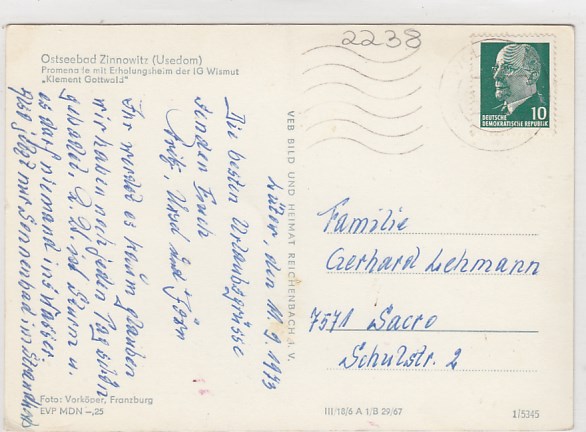 2238
Ostseebad Zinnowitz (Usedom)
Promenade mit Erholungsheim der IG Wismut
„Klement Gottwald"
10
DEUTSCHE
DEMOKRATISCHE REPUBLIK
den 11.9.1973
Die besten Urlaubsgrüsse
senden Euch
Fritz, Ursel und Jörn
Ihr werdet es kaum glauben
wir haben noch jeden Tag schön
gebadet. Z. Zt. ist Sturm u.
es darf niemand ins Wasser
jetzt nur Sonnenbad im Strandkorb
VEB BILD UND HEIMAT REICHENBACH I. V.
Familie
Gerhard Lehmann
7571 Sacro
Schulstr. 2
Foto: Vorköper, Franzburg
EVP MDN –,25
III/18/6 A 1/B 29/67
1/5345